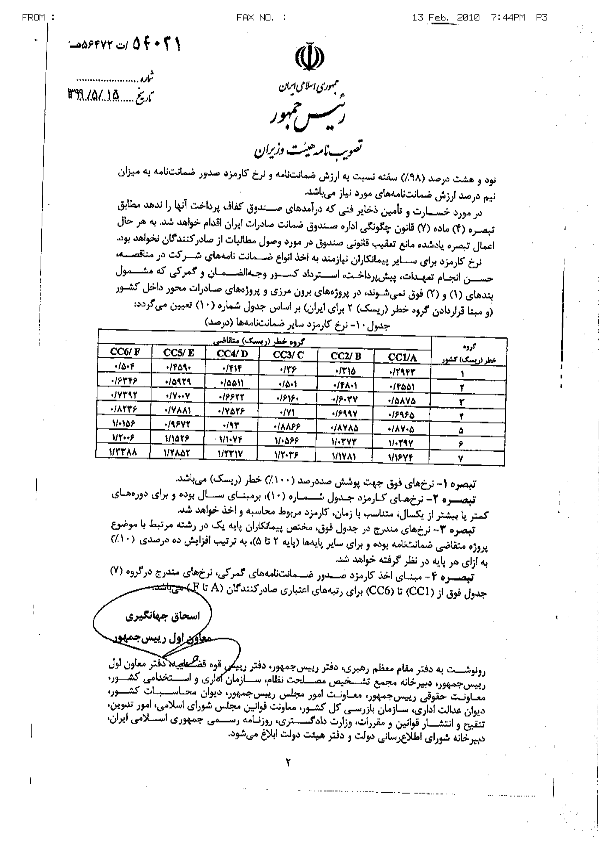 FROM : FAX NO. : 13 Feb. 2010 7:44PM P3
۵۴۰۲۱/ت۵۶۴۷۲هـ
شماره
تاریخ ۱۳۹۹/۵/۱۵
جمهوری اسلامی ایران
رئیس جمهور
تصویب نامه هیئت وزیران
نود و هشت درصد (۹۸٪) سفته نسبت به ارزش ضمانت‌نامه و نرخ کارمزد صدور ضمانت‌نامه به میزان
نیم درصد ارزش ضمانت‌نامه‌های مورد نیاز می‌باشد.
در مورد خسارت و تأمین ذخایر فنی که درآمدهای صندوق کفاف پرداخت آنها را ندهد مطابق
تبصره (۴) ماده (۷) قانون چگونگی اداره صندوق ضمانت صادرات ایران اقدام خواهد شد. به هر حال
اعمال تبصره یادشده مانع تعقیب قانونی صندوق در مورد وصول مطالبات از صادرکنندگان نخواهد بود.
نرخ کارمزد برای سایر پیمانکاران نیازمند به اخذ انواع ضمانت نامه‌های شرکت در مناقصه،
حسن انجام تعهدات، پیش‌پرداخت، استرداد کسور وجه‌الضمان و گمرکی که مشمول
بندهای (۱) و (۲) فوق نمی‌شوند، در پروژه‌های برون مرزی و پروژه‌های صادرات محور داخل کشور
(و مبنا قراردادن گروه خطر (ریسک) ۲ برای ایران) بر اساس جدول شماره (۱۰) تعیین می‌گردد:
جدول۱۰- نرخ کارمزد سایر ضمانت‌نامه‌ها (درصد)
گروه خطر (ریسک) کشور گروه خطر (ریسک) متقاضی
CC1/A CC2/B CC3/C CC4/D CC5/E CC6/F
۱ ۰/۲۹۴۳ ۰/۳۱۵ ۰/۳۶ ۰/۴۱۴ ۰/۴۵۹۰ ۰/۵۰۴
۲ ۰/۴۵۵۱ ۰/۴۸۰۱ ۰/۵۰۱ ۰/۵۵۱۱ ۰/۵۹۲۹ ۰/۶۳۴۶
۳ ۰/۵۸۷۵ ۰/۶۰۳۷ ۰/۶۱۶۰ ۰/۶۶۲۲ ۰/۷۰۰۷ ۰/۷۳۹۲
۴ ۰/۶۹۶۵ ۰/۶۹۹۷ ۰/۷۱ ۰/۷۵۲۶ ۰/۷۸۸۱ ۰/۸۲۳۶
۵ ۰/۸۷۰۵ ۰/۸۷۸۵ ۰/۸۸۶۶ ۰/۹۳ ۰/۹۶۷۲ ۱/۰۱۵۶
۶ ۱/۰۳۹۷ ۱/۰۳۷۳ ۱/۰۵۶۶ ۱/۱۰۷۴ ۱/۱۵۲۶ ۱/۲۰۰۶
۷ ۱/۱۶۷۴ ۱/۱۷۸۱ ۱/۲۰۳۶ ۱/۲۳۱۷ ۱/۲۸۵۲ ۱/۳۳۸۸
تبصره ۱- نرخ‌های فوق جهت پوشش صددرصد (۱۰۰٪) خطر (ریسک) می‌باشد.
تبصره ۲- نرخ‌های کارمزد جدول شماره (۱۰)، برمبنای سال بوده و برای دوره‌های
کمتر یا بیشتر از یکسال، متناسب با زمان، کارمزد مربوط محاسبه و اخذ خواهد شد.
تبصره ۳- نرخ‌های مندرج در جدول فوق، مختص پیمانکاران پایه یک در رشته مرتبط با موضوع
پروژه متقاضی ضمانت‌نامه بوده و برای سایر پایه‌ها (پایه ۲ تا ۵)، به ترتیب افزایش ده درصدی (۱۰٪)
به ازای هر پایه در نظر گرفته خواهد شد.
تبصره ۴- مبنای اخذ کارمزد صدور ضمانت‌نامه‌های گمرکی، نرخ‌های مندرج درگروه (۷)
جدول فوق از (CC1) تا (CC6) برای رتبه‌های اعتباری صادرکنندگان (A تا F) می‌باشد.
اسحاق جهانگیری
معاون اول رییس‌جمهور
رونوشت به دفتر مقام معظم رهبری، دفتر رییس‌جمهور، دفتر رییس قوه قضاییه، دفتر معاون اول
رییس‌جمهور، دبیرخانه مجمع تشخیص مصلحت نظام، سازمان اداری و استخدامی کشور،
معاونت حقوقی رییس‌جمهور، معاونت امور مجلس رییس‌جمهور، دیوان محاسبات کشور،
دیوان عدالت اداری، سازمان بازرسی کل کشور، معاونت قوانین مجلس شورای اسلامی، امور تدوین،
تنقیح و انتشار قوانین و مقررات، وزارت دادگستری، روزنامه رسمی جمهوری اسلامی ایران،
دبیرخانه شورای اطلاع‌رسانی دولت و دفتر هیئت دولت ابلاغ می‌شود.
۲